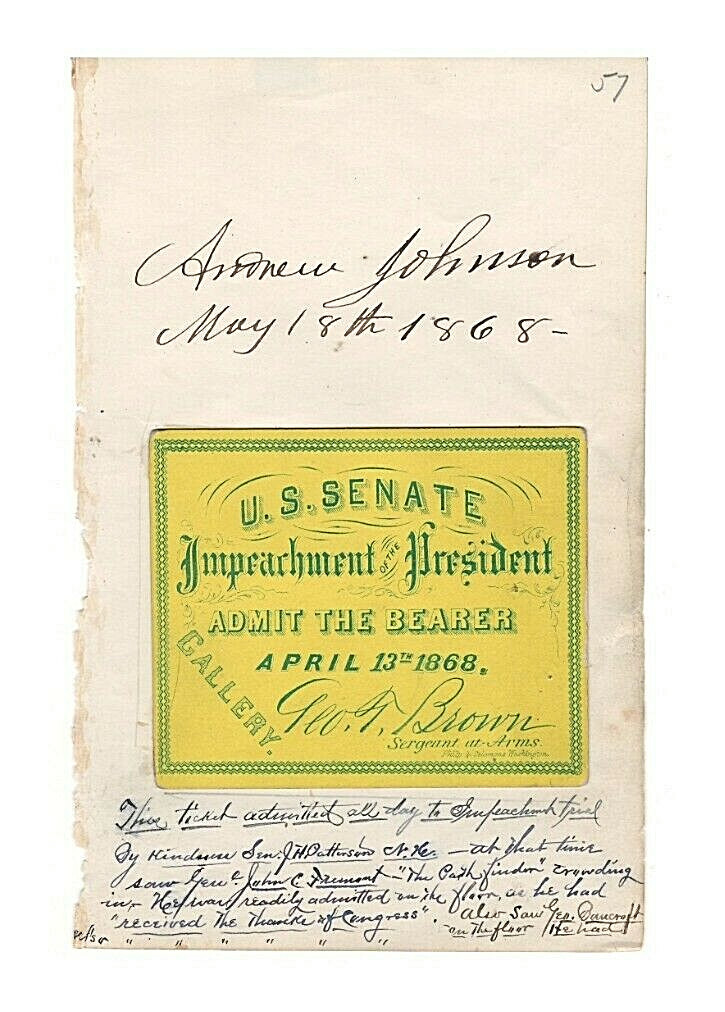 57
Andrew Johnson
May 18th 1868-
U. S. SENATE
Impeachment OF THE President
ADMIT THE BEARER
APRIL 13TH 1868.
GALLERY.
Geo. T. Brown
Sergeant-at-Arms.
Philp & Solomons Washington
This ticket admitted all day to Impeachment trial
By Kindness Sen. J W Patterson N. H. - at that time
saw Genl. John C. Fremont - "The Path finder" crowding
in - He was readily admitted on the floor, as he had
"received the thanks of Congress". also saw Geo. Bancroft
on the floor / He had
" " " " "